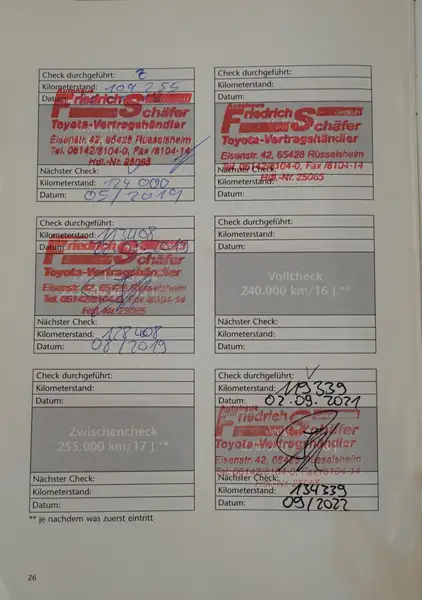 Check durchgeführt:
Kilometerstand: 109 255
Datum:
Autohaus
Friedrich GmbH
Schäfer
Toyota-Vertragshändler
Eisenstr. 42, 65428 Rüsselsheim
Tel. 06142/8104-0, Fax /8104-14
Hdl.-Nr. 25065
Nächster Check:
Kilometerstand: 124 000
Datum: 05/2019
Check durchgeführt:
Kilometerstand:
Datum:
Autohaus
Friedrich GmbH
Schäfer
Toyota-Vertragshändler
Eisenstr. 42, 65428 Rüsselsheim
Tel. 06142/8104-0, Fax /8104-14
Hdl.-Nr. 25065
Nächster Check:
Kilometerstand:
Datum:
Check durchgeführt:
Kilometerstand: 113408
Datum:
Friedrich
Schäfer
Toyota-Vertragshändler
Eisenstr. 42, 65428 Rüsselsheim
Tel. 06142/8104-0, Fax /8104-14
Hdl.-Nr. 25065
Nächster Check:
Kilometerstand: 128408
Datum: 08/2019
Check durchgeführt:
Kilometerstand:
Datum:
Vollcheck
240.000 km/16 J.**
Nächster Check:
Kilometerstand:
Datum:
Check durchgeführt:
Kilometerstand:
Datum:
Zwischencheck
255.000 km/17 J.**
Nächster Check:
Kilometerstand:
Datum:
Check durchgeführt: ✓
Kilometerstand: 119339
Datum: 02.09.2021
Autohaus
Friedrich
Schäfer
Toyota-Vertragshändler
Eisenstr. 42, 65428 Rüsselsheim
Tel. 06142/8104-0, Fax /8104-14
Nächster Check:
Kilometerstand: 134339
Datum: 09/2022
** je nachdem was zuerst eintritt
26